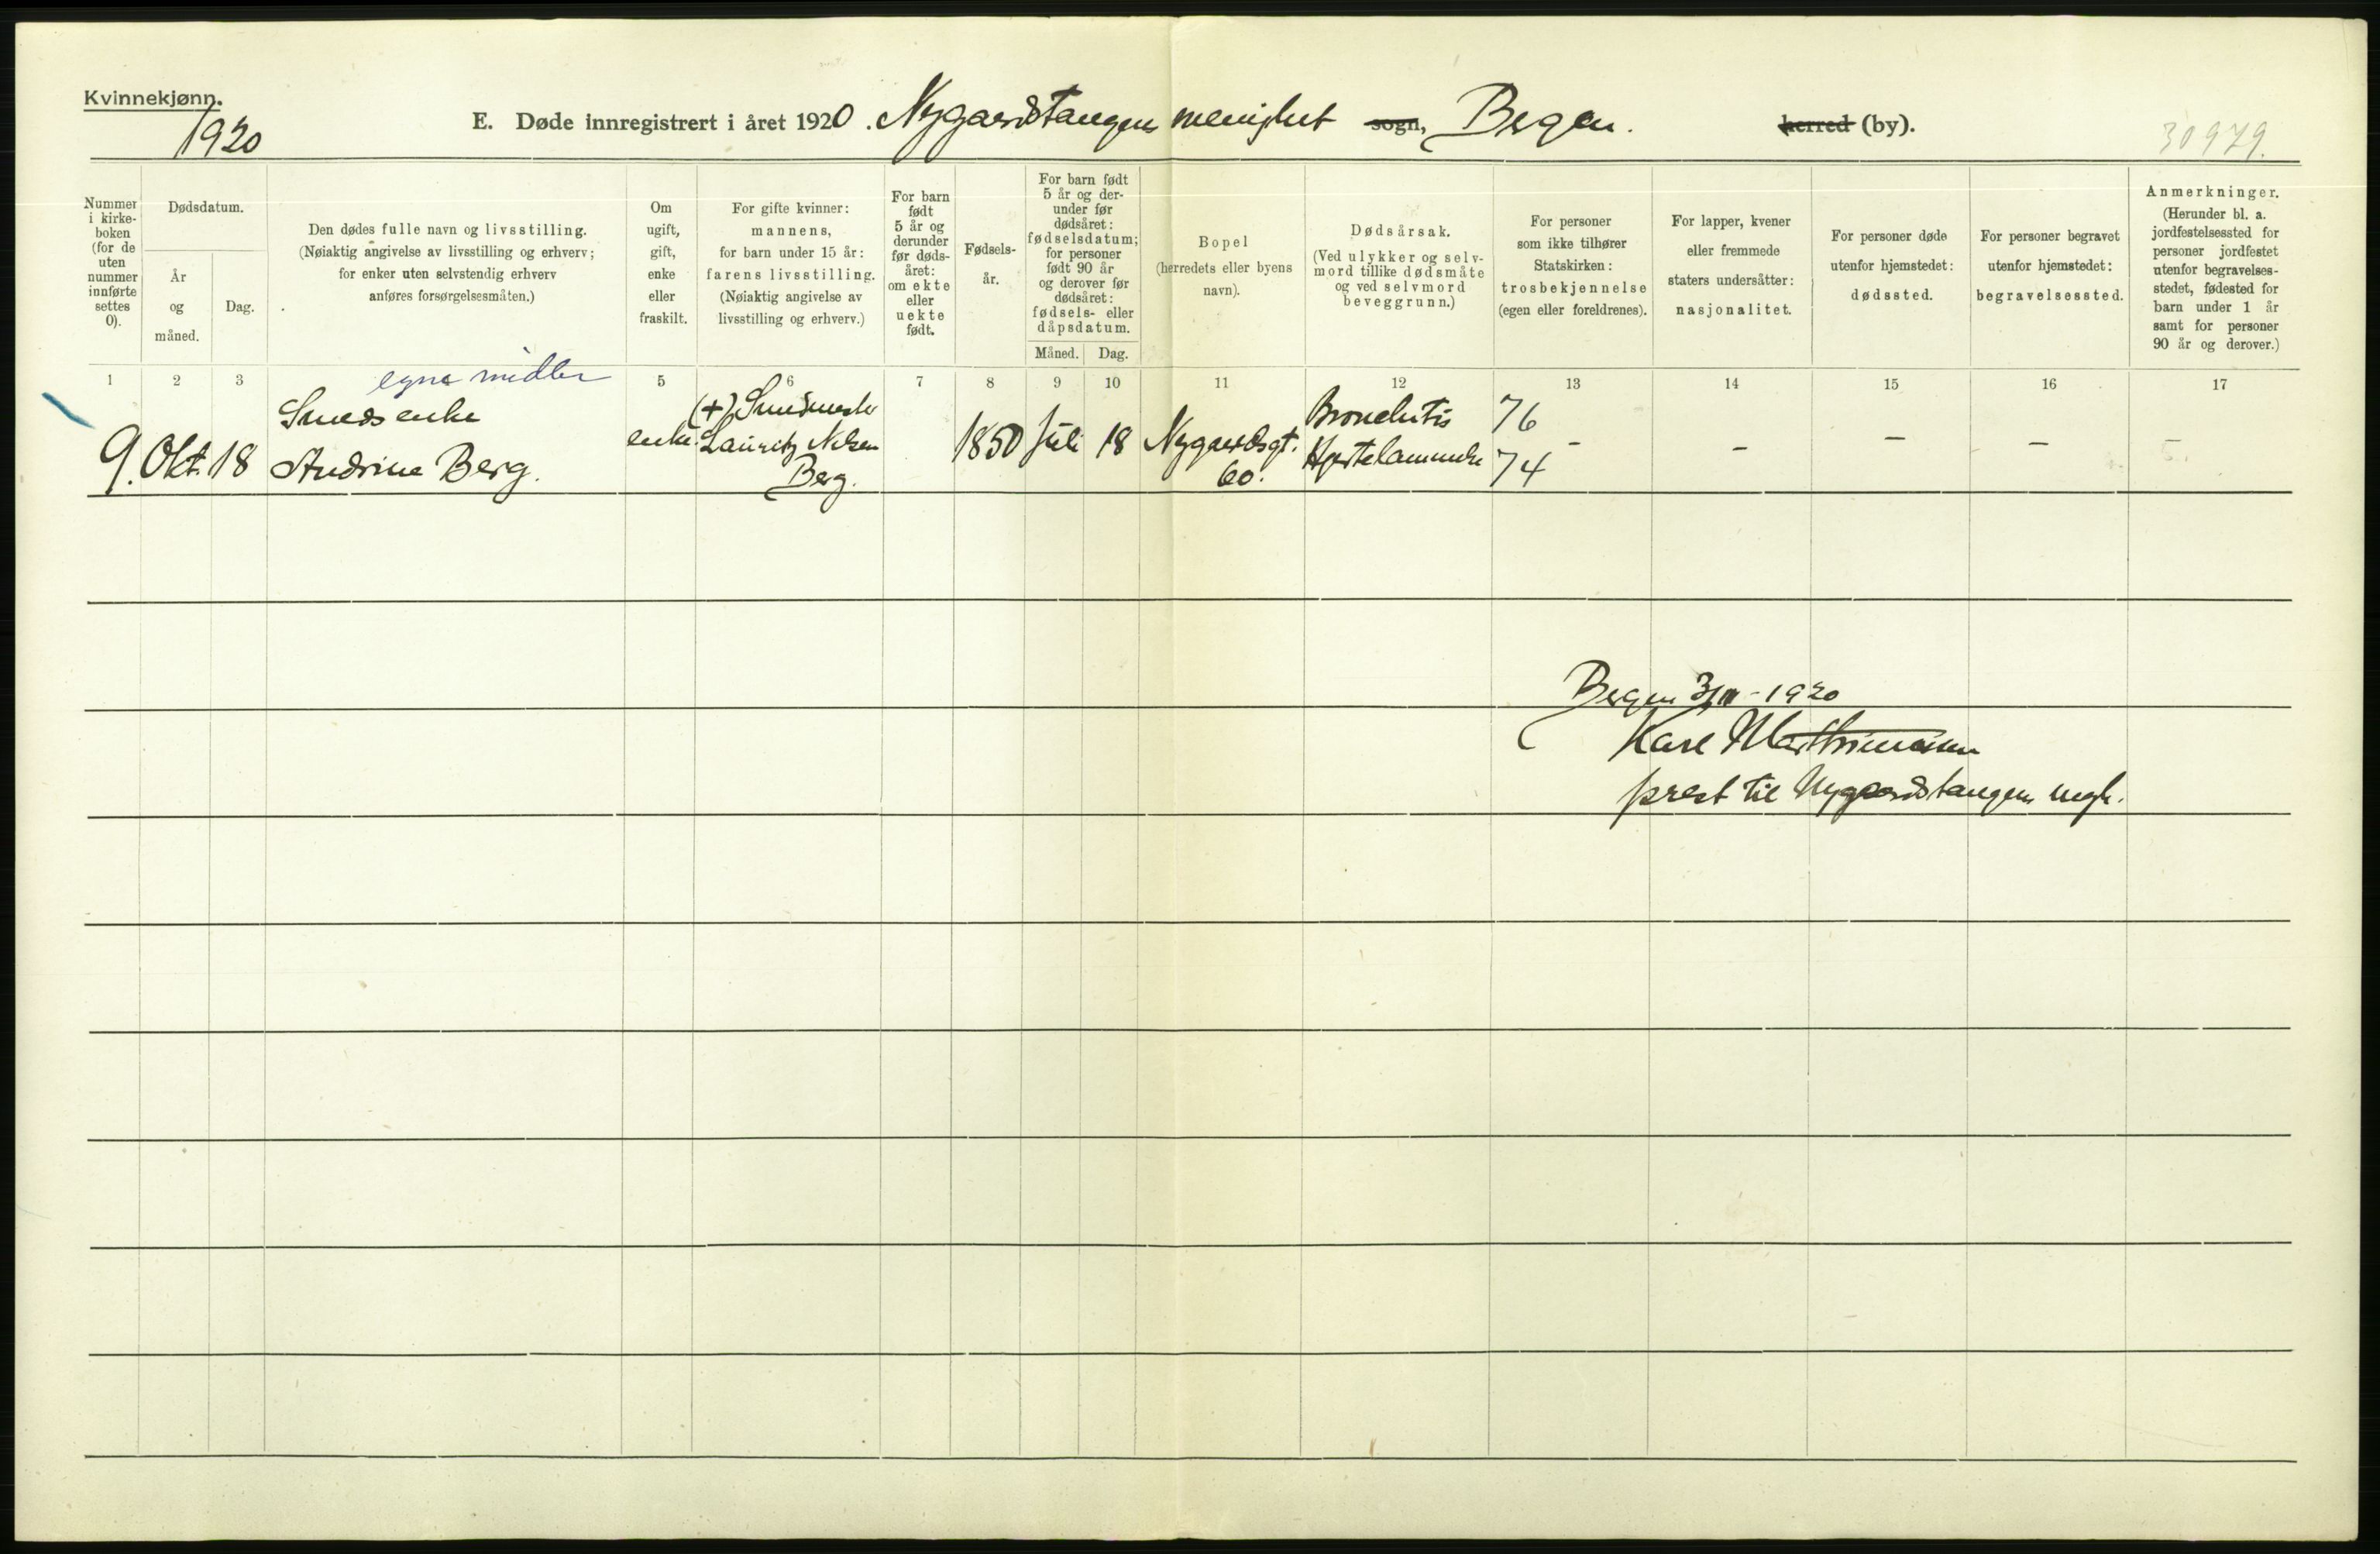 Kvinnekjønn.
1920
E. Døde innregistrert i året 1920. Nygaardstangens menighet sogn, Bergen. herred (by).
30979.
Nummer i kirke-boken (for de uten nummer innførte settes 0).
Dødsdatum.
År og måned.
Dag.
Den dødes fulle navn og livsstilling.
(Nøiaktig angivelse av livsstilling og erhverv;
for enker uten selvstendig erhverv
anføres forsørgelsesmåten.)
Om ugift, gift, enke eller fraskilt.
For gifte kvinner:
mannens,
for barn under 15 år:
farens livsstilling.
(Nøiaktig angivelse av
livsstilling og erhverv.)
For barn født 5 år og derunder før døds-året: om ekte eller uekte født.
Fødsels-år.
For barn født 5 år og der-under før dødsåret: fødselsdatum; for personer født 90 år og derover før dødsåret: fødsels- eller dåpsdatum.
Måned. Dag.
Bopel
(herredets eller byens
navn).
Dødsårsak.
(Ved ulykker og selv-
mord tillike dødsmåte
og ved selvmord
beveggrunn.)
For personer
som ikke tilhører
Statskirken:
trosbekjennelse
(egen eller foreldrenes).
For lapper, kvener
eller fremmede
staters undersåtter:
nasjonalitet.
For personer døde
utenfor hjemstedet:
dødssted.
For personer begravet
utenfor hjemstedet:
begravelsessted.
Anmerkninger.
(Herunder bl. a.
jordfestelsessted for
personer jordfestet
utenfor begravelses-
stedet, fødested for
barn under 1 år
samt for personer
90 år og derover.)
1 2 3 5 6 7 8 9 10 11 12 13 14 15 16 17
egne midler
Smeds enke
9. Okt 18 Andrine Berg.
enke.
(+) Smedmester
Lauritz Nilsen
Berg.
1850 Juli 18
Nygaardsgt.
60.
Bronchitis 76
Hjertelammelse 74
- - - -
Bergen 3/11 - 1920
Karl Marthinussen
prest til Nygaardstangens mgh.